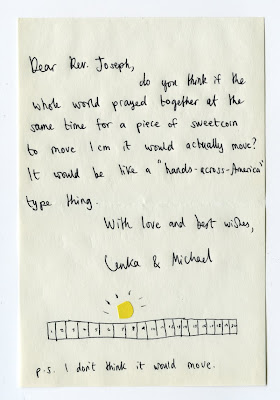 Dear Rev. Joseph,
do you think if the
whole world prayed together at the
same time for a piece of sweetcorn
to move 1cm it would actually move?
It would be like a "hands-across-America"
type thing.
With love and best wishes,
Lenka & Michael
1 2 3 4 5 6 7 8 9 10 11 12 13 14 15 16 17 18 19 20
p.s. I don't think it would move.